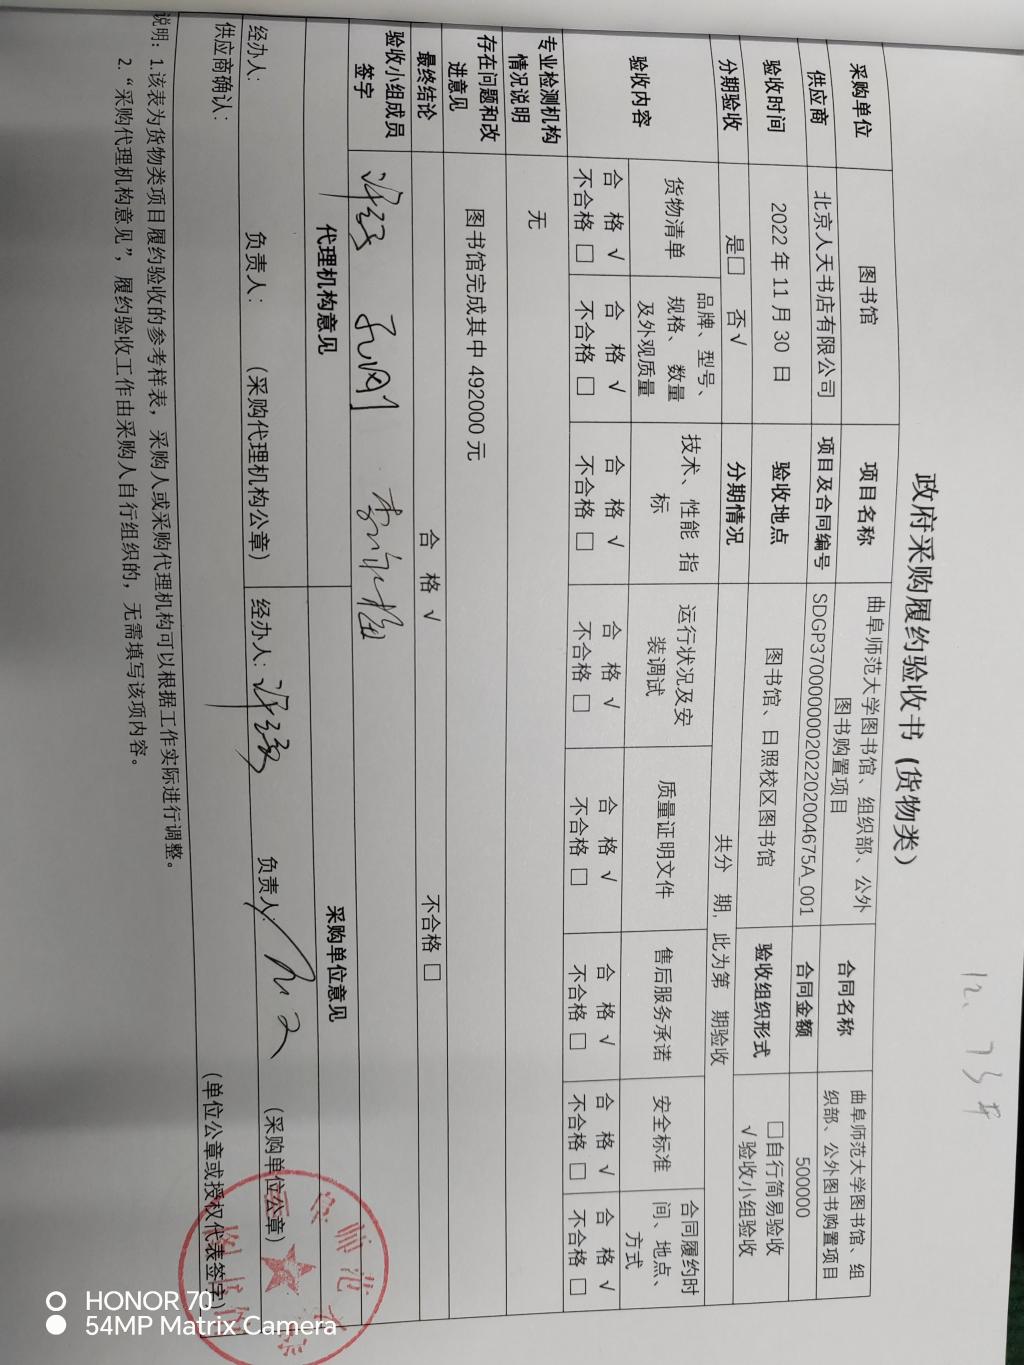 政府采购履约验收书（货物类）
采购单位 图书馆 项目名称 曲阜师范大学图书馆、组织部、公外图书购置项目 合同名称 曲阜师范大学图书馆、组织部、公外图书购置项目
供应商 北京人天书店有限公司 项目及合同编号 SDGP370000000202202004675A_001 合同金额 500000
验收时间 2022 年 11 月 30 日 验收地点 图书馆、日照校区图书馆 验收组织形式 □自行简易验收
√验收小组验收
分期验收 是□ 否√ 分期情况 共分 期，此为第 期验收
验收内容 货物清单 品牌、型号、规格、数量及外观质量 技术、性能 指标 运行状况及安装调试 质量证明文件 售后服务承诺 安全标准 合同履约时间、地点、方式
合 格 √ 合 格 √ 合 格 √ 合 格 √ 合 格 √ 合 格 √ 合 格 √ 合 格 √
不合格 □ 不合格 □ 不合格 □ 不合格 □ 不合格 □ 不合格 □ 不合格 □ 不合格 □
专业检测机构情况说明 无
存在问题和改进意见 图书馆完成其中 492000 元
最终结论 合 格 √ 不合格 □
验收小组成员签字
代理机构意见 采购单位意见
经办人： 负责人： （采购代理机构公章） 经办人： 负责人： （采购单位公章）
供应商确认： （单位公章或授权代表签字）
说明：1.该表为货物类项目履约验收的参考样表，采购人或采购代理机构可以根据工作实际进行调整。
2.“采购代理机构意见”，履约验收工作由采购人自行组织的，无需填写该项内容。
HONOR 70
54MP Matrix Camera